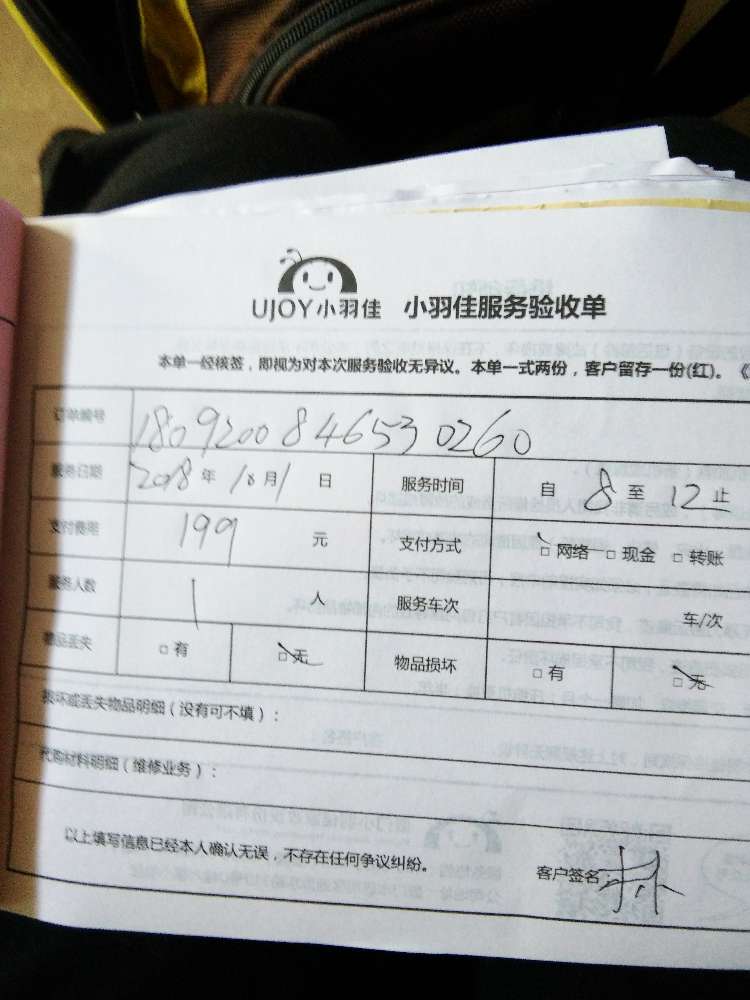 UJOY小羽佳 小羽佳服务验收单
本单一经核签，即视为对本次服务验收无异议。本单一式两份，客户留存一份(红)。《
订单编号 1809200846530260
服务日期 2018年10月1日 服务时间 自8至12止
支付费用 199元 支付方式 □网络 □现金 □转账
服务人数 1人 服务车次 车/次
物品丢失 □有 □无 物品损坏 □有 □无
损坏或丢失物品明细（没有可不填）：
代购材料明细（维修业务）：
以上填写信息已经本人确认无误，不存在任何争议纠纷。 客户签名：